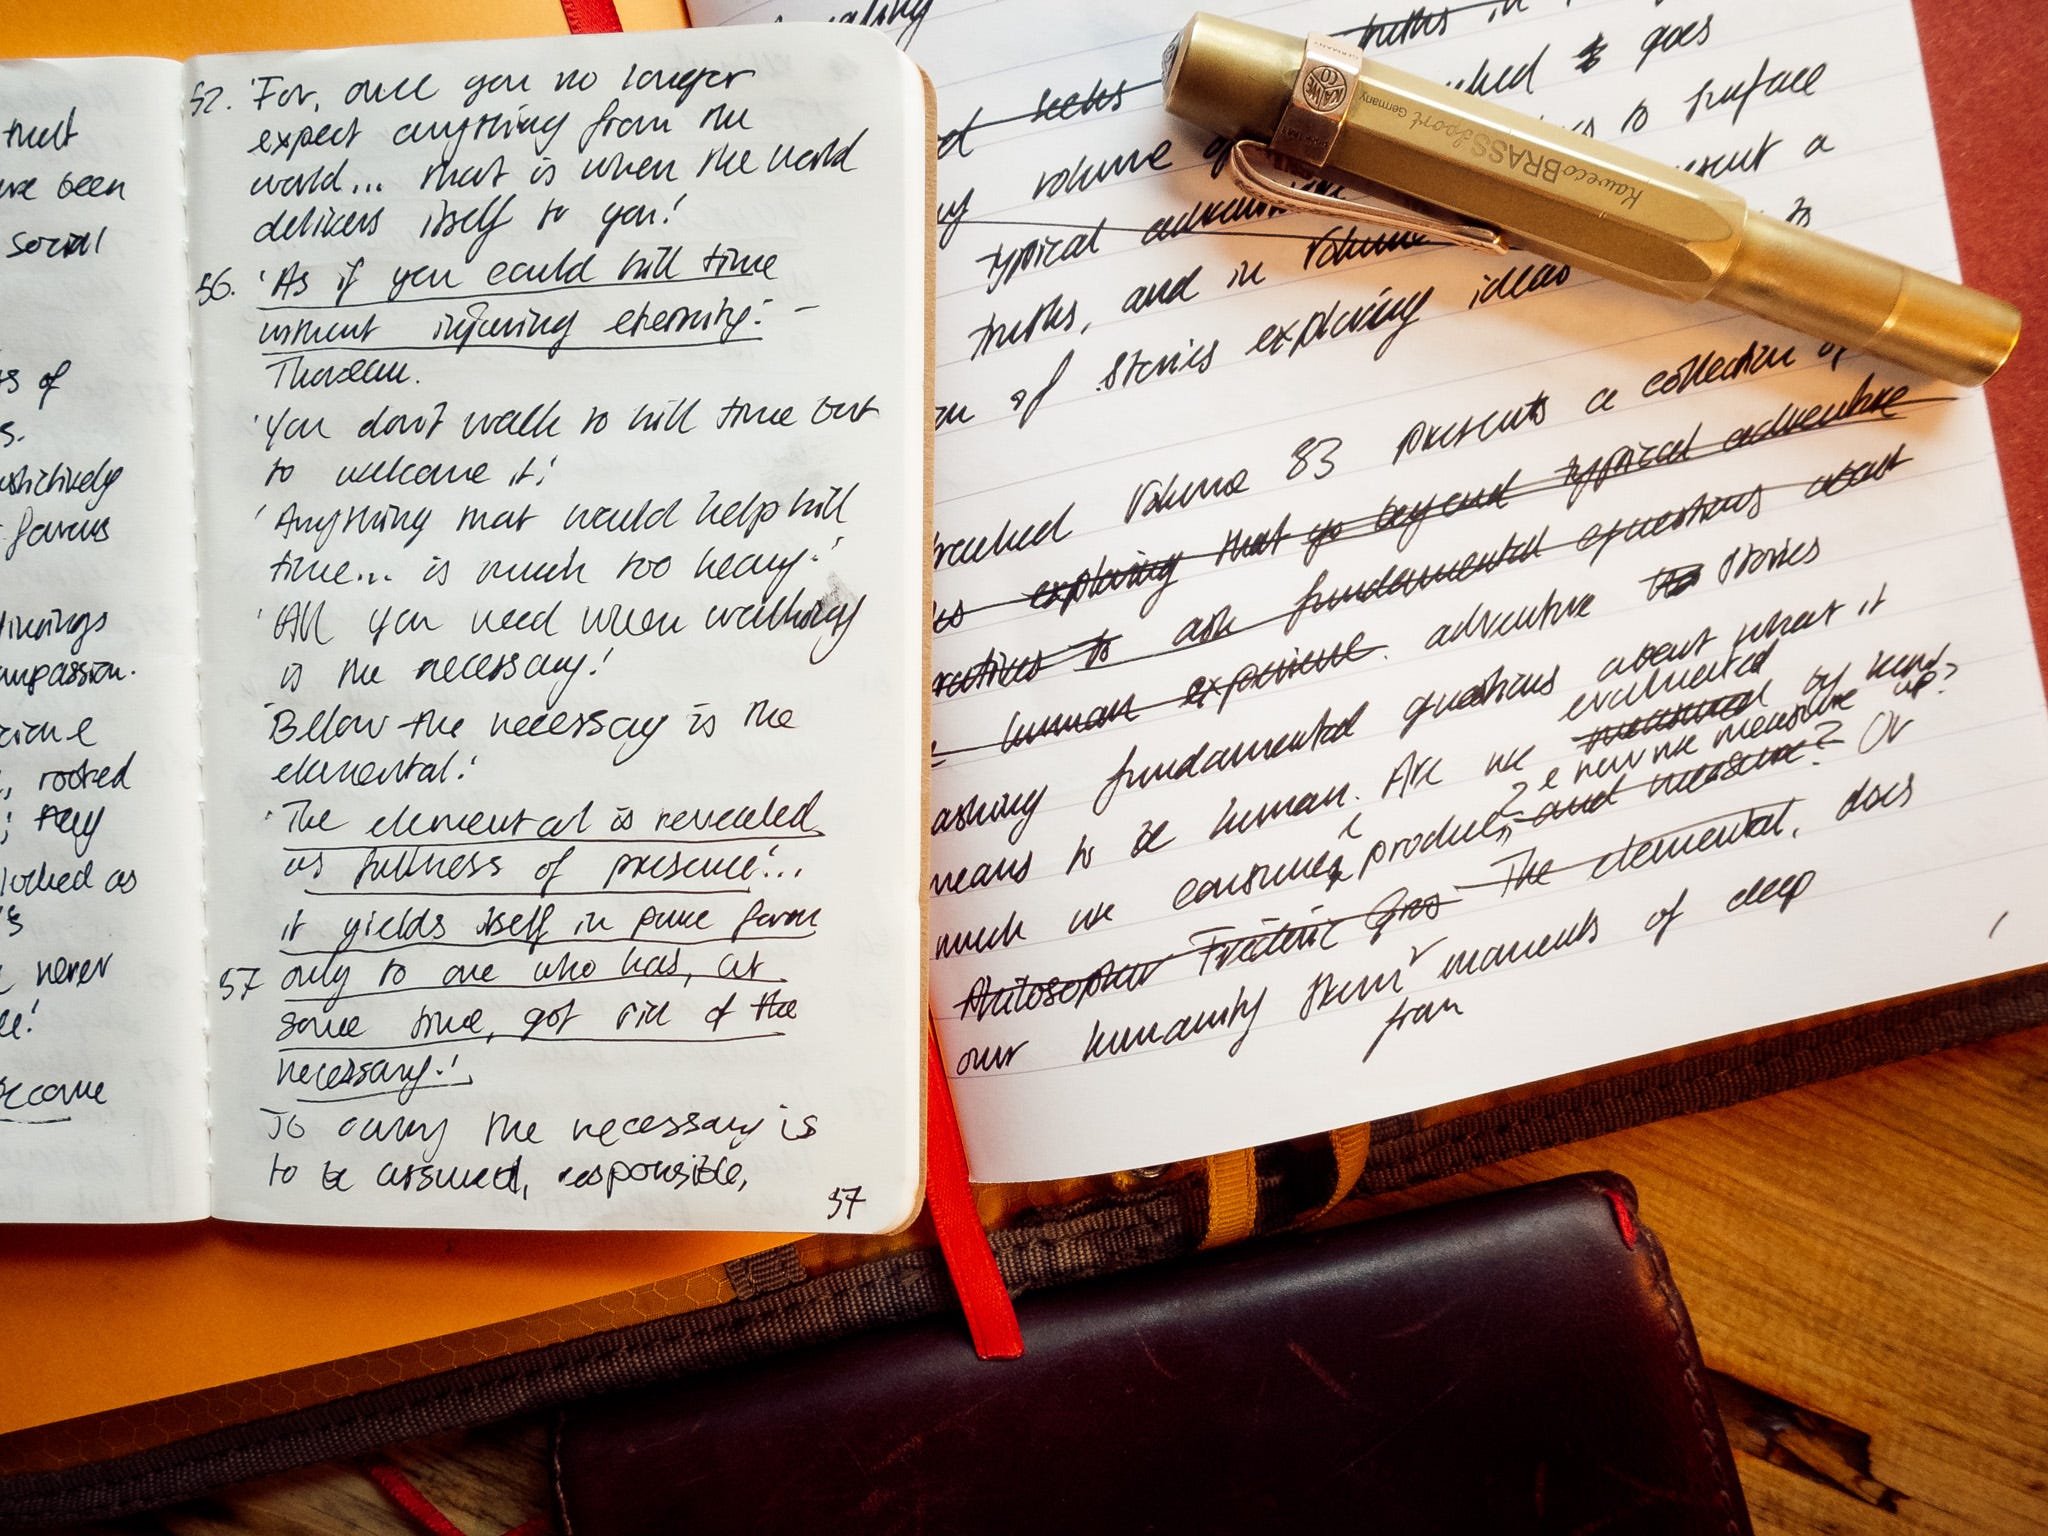 that
been
social
of
s.
favours
compassion.
rooted
; they
looked as
never
!
become
52. 'For, once you no longer
expect anything from the
world... that is when the world
delivers itself to you!'
56. 'As if you could kill time
without injuring eternity!' -
Thoreau.
'You don't walk to kill time but
to welcome it!'
'Anything that would help kill
time... is much too heavy!'
'All you need when walking
is the necessary!'
'Bellow the necessary is the
elemental!'
'The elemental is revealed
as fullness of presence!...
it yields itself in pure form
57 only to one who has, at
some time, got rid of the
necessary!'
To carry the necessary is
to be assured, responsible,
57
truths in
seeks goes
to surface
volume of
typical a
truths, and in volume to
of stories exploring ideas
Volume 83 presents a collection of
exploring that go beyond typical adventure
to ask fundamental questions about
human experience. adventure stories
asking fundamental questions about what it
means to be human. Are we evaluated measured by how
much we consume, produce, and measure? Or
? e how we measure up?
Philosopher Frédéric Gros The elemental, does
our humanity stem moments of deep
from
KAWECO
GERMANY
KawecoBRASSSport Germany